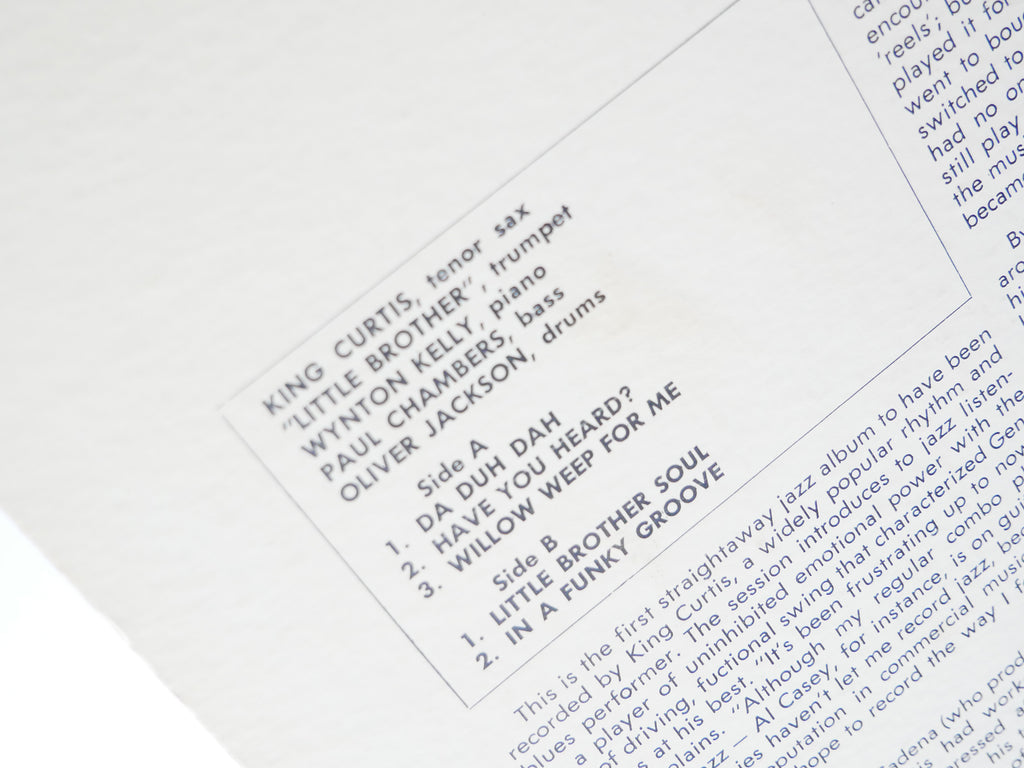 KING CURTIS, tenor sax
"LITTLE BROTHER", trumpet
WYNTON KELLY, piano
PAUL CHAMBERS, bass
OLIVER JACKSON, drums
Side A
1. DA DUH DAH
2. HAVE YOU HEARD?
3. WILLOW WEEP FOR ME
Side B
1. LITTLE BROTHER SOUL
2. IN A FUNKY GROOVE
encou
'reels'; bu
played it for
went to bou
switched to
had no or
still play
the mus
became
By
aro
hi
This is the first straightaway jazz album to have been
recorded by King Curtis, a widely popular rhythm and
blues performer. The session introduces to jazz listen-
a player of uninhibited emotional power with the
of driving, fuctional swing that characterized Gen
s at his best. "It's been frustrating up to now
plains. "Although my regular combo p
zz — Al Casey, for instance, is on gui
ies haven't let me record jazz, bec
eputation in commercial music
hope to record the way I f
adena (who prod
s had work
pressed a
his t